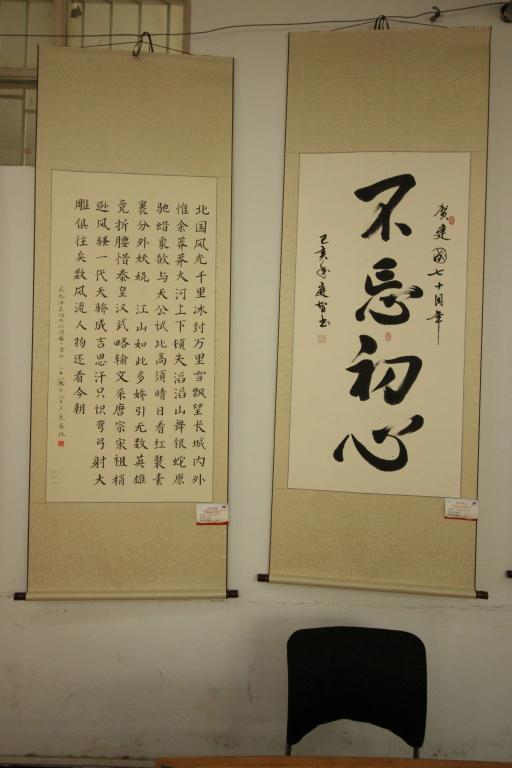 北国风光千里冰封万里雪飘望长城内外
惟余莽莽大河上下顿失滔滔山舞银蛇原
驰蜡象欲与天公试比高须晴日看红装素
裹分外妖娆 江山如此多娇引无数英雄
竞折腰惜秦皇汉武略输文采唐宗宋祖稍
逊风骚一代天骄成吉思汗只识弯弓射大
雕俱往矣数风流人物还看今朝
贺建國七十周年
不忘初心
己亥年庭智书